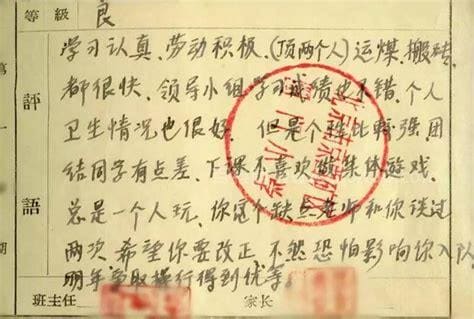 等級 良
学习认真、劳动积极、(顶两个人)运煤、搬砖
都很快、领导小组学习成绩也不错、个人
卫生情况也很好。但是个性比較强、团
结同学有点差、下课不喜欢做集体游戏、
总是一个人玩，你这个缺点老师和你谈过
两次，希望你要改正，不然恐怕影响你入队
明年争取操行得到优等。
第一 期
評語
小学
班主任
家长